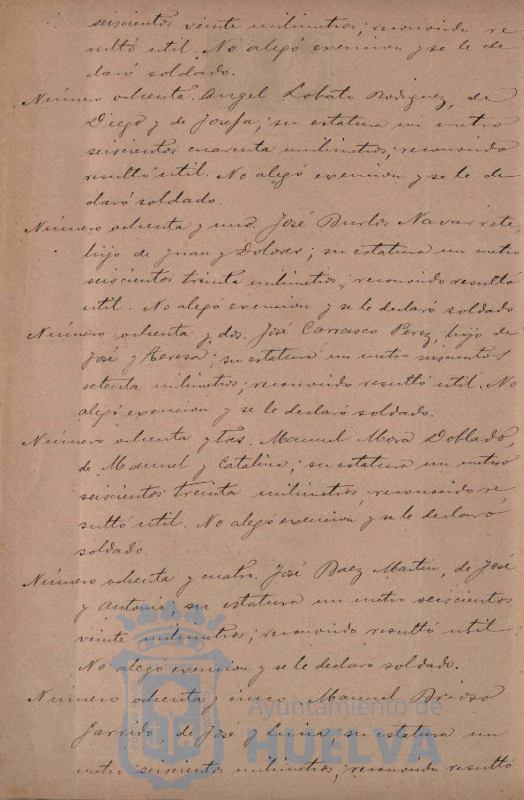 seiscientos veinte milimetros; reconocido re
sultó util. No alegó exencion y se le de
claró soldado.
Número ochenta. Angel Lobato Rodriguez, de
Diego y de Josefa; su estatura un metro
seiscientos cuarenta milimetros; reconocido
resultó util. No alegó exencion y se le de
claró soldado.
Número ochenta y uno. José Buelos Navarrete,
hijo de Juan y Dolores; su estatura un metro
seiscientos treinta milimetros; reconocido resultó
util. No alegó exencion y se le declaró soldado
Número ochenta y dos. José Carrasco Perez, hijo de
José y Teresa; su estatura un metro seiscientos
setenta milimetros; reconocido resultó util. No
alegó exencion y se le declaró soldado.
Número ochenta y tres. Manuel Mora Doblado,
de Manuel y Catalina; su estatura un metro
seiscientos treinta milimetros; reconocido re
sultó util. No alegó exencion y se le declaró
soldado.
Número ochenta y cuatro. José Baez Martin, de José
y Antonia, su estatura un metro seiscientos
veinte milimetros; reconocido resultó util
No alegó exencion y se le declaró soldado.
Número ochenta y cinco. Manuel Brioso
Garrido, de José y; su estatura un
metro seiscientos milimetros; reconocido resultó
Ayuntamiento de
HUELVA